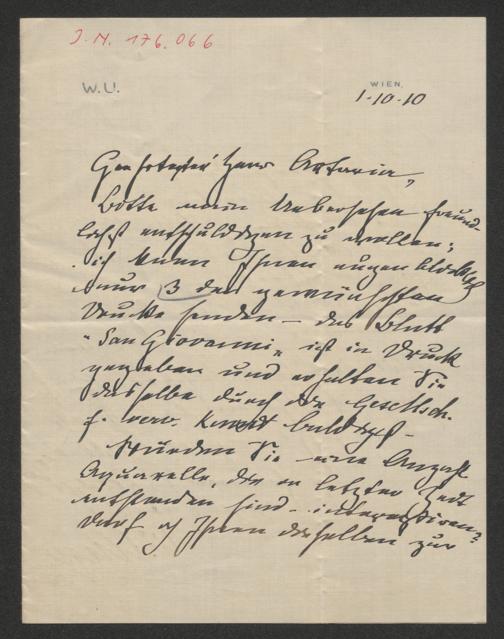 J.N. 176.066
W.U.
WIEN,
1-10-10
Geehrtester Herr Artaria,
Bitte mein Uebersehen freund-
lichst entschuldigen zu wollen;
ich kann Ihnen augenblicklich
nur 3 der gewünschten
Drucke senden – das Blatt
"San Giovanni" ist in Druck
gegeben und erhalten Sie
dasselbe durch die Gesellsch.
f. verv. Kunst baldigst –
Würden Sie eine Anzahl
Aquarelle, die in letzter Zeit
entstanden sind – interessiren?
Darf ich Ihnen dieselben zur